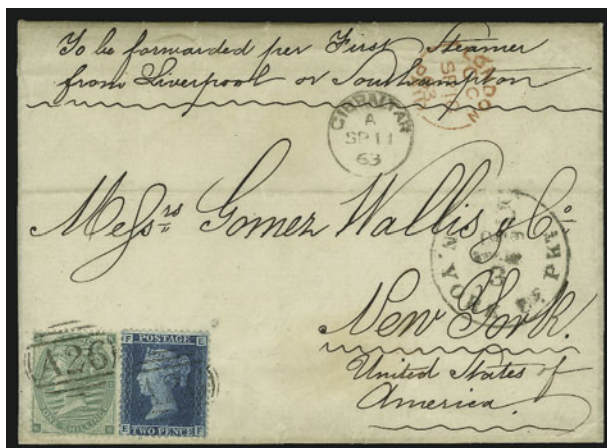 To be forwarded per First Steamer
from Liverpool or Southampton
GIBRALTAR
A
SP 11
63
LONDON
SP
PAID
Messrs Gomez Wallis & Co.
New York.
United States of
America.
A26
ONE SHILLING
POSTAGE
TWO PENCE
F E
E F